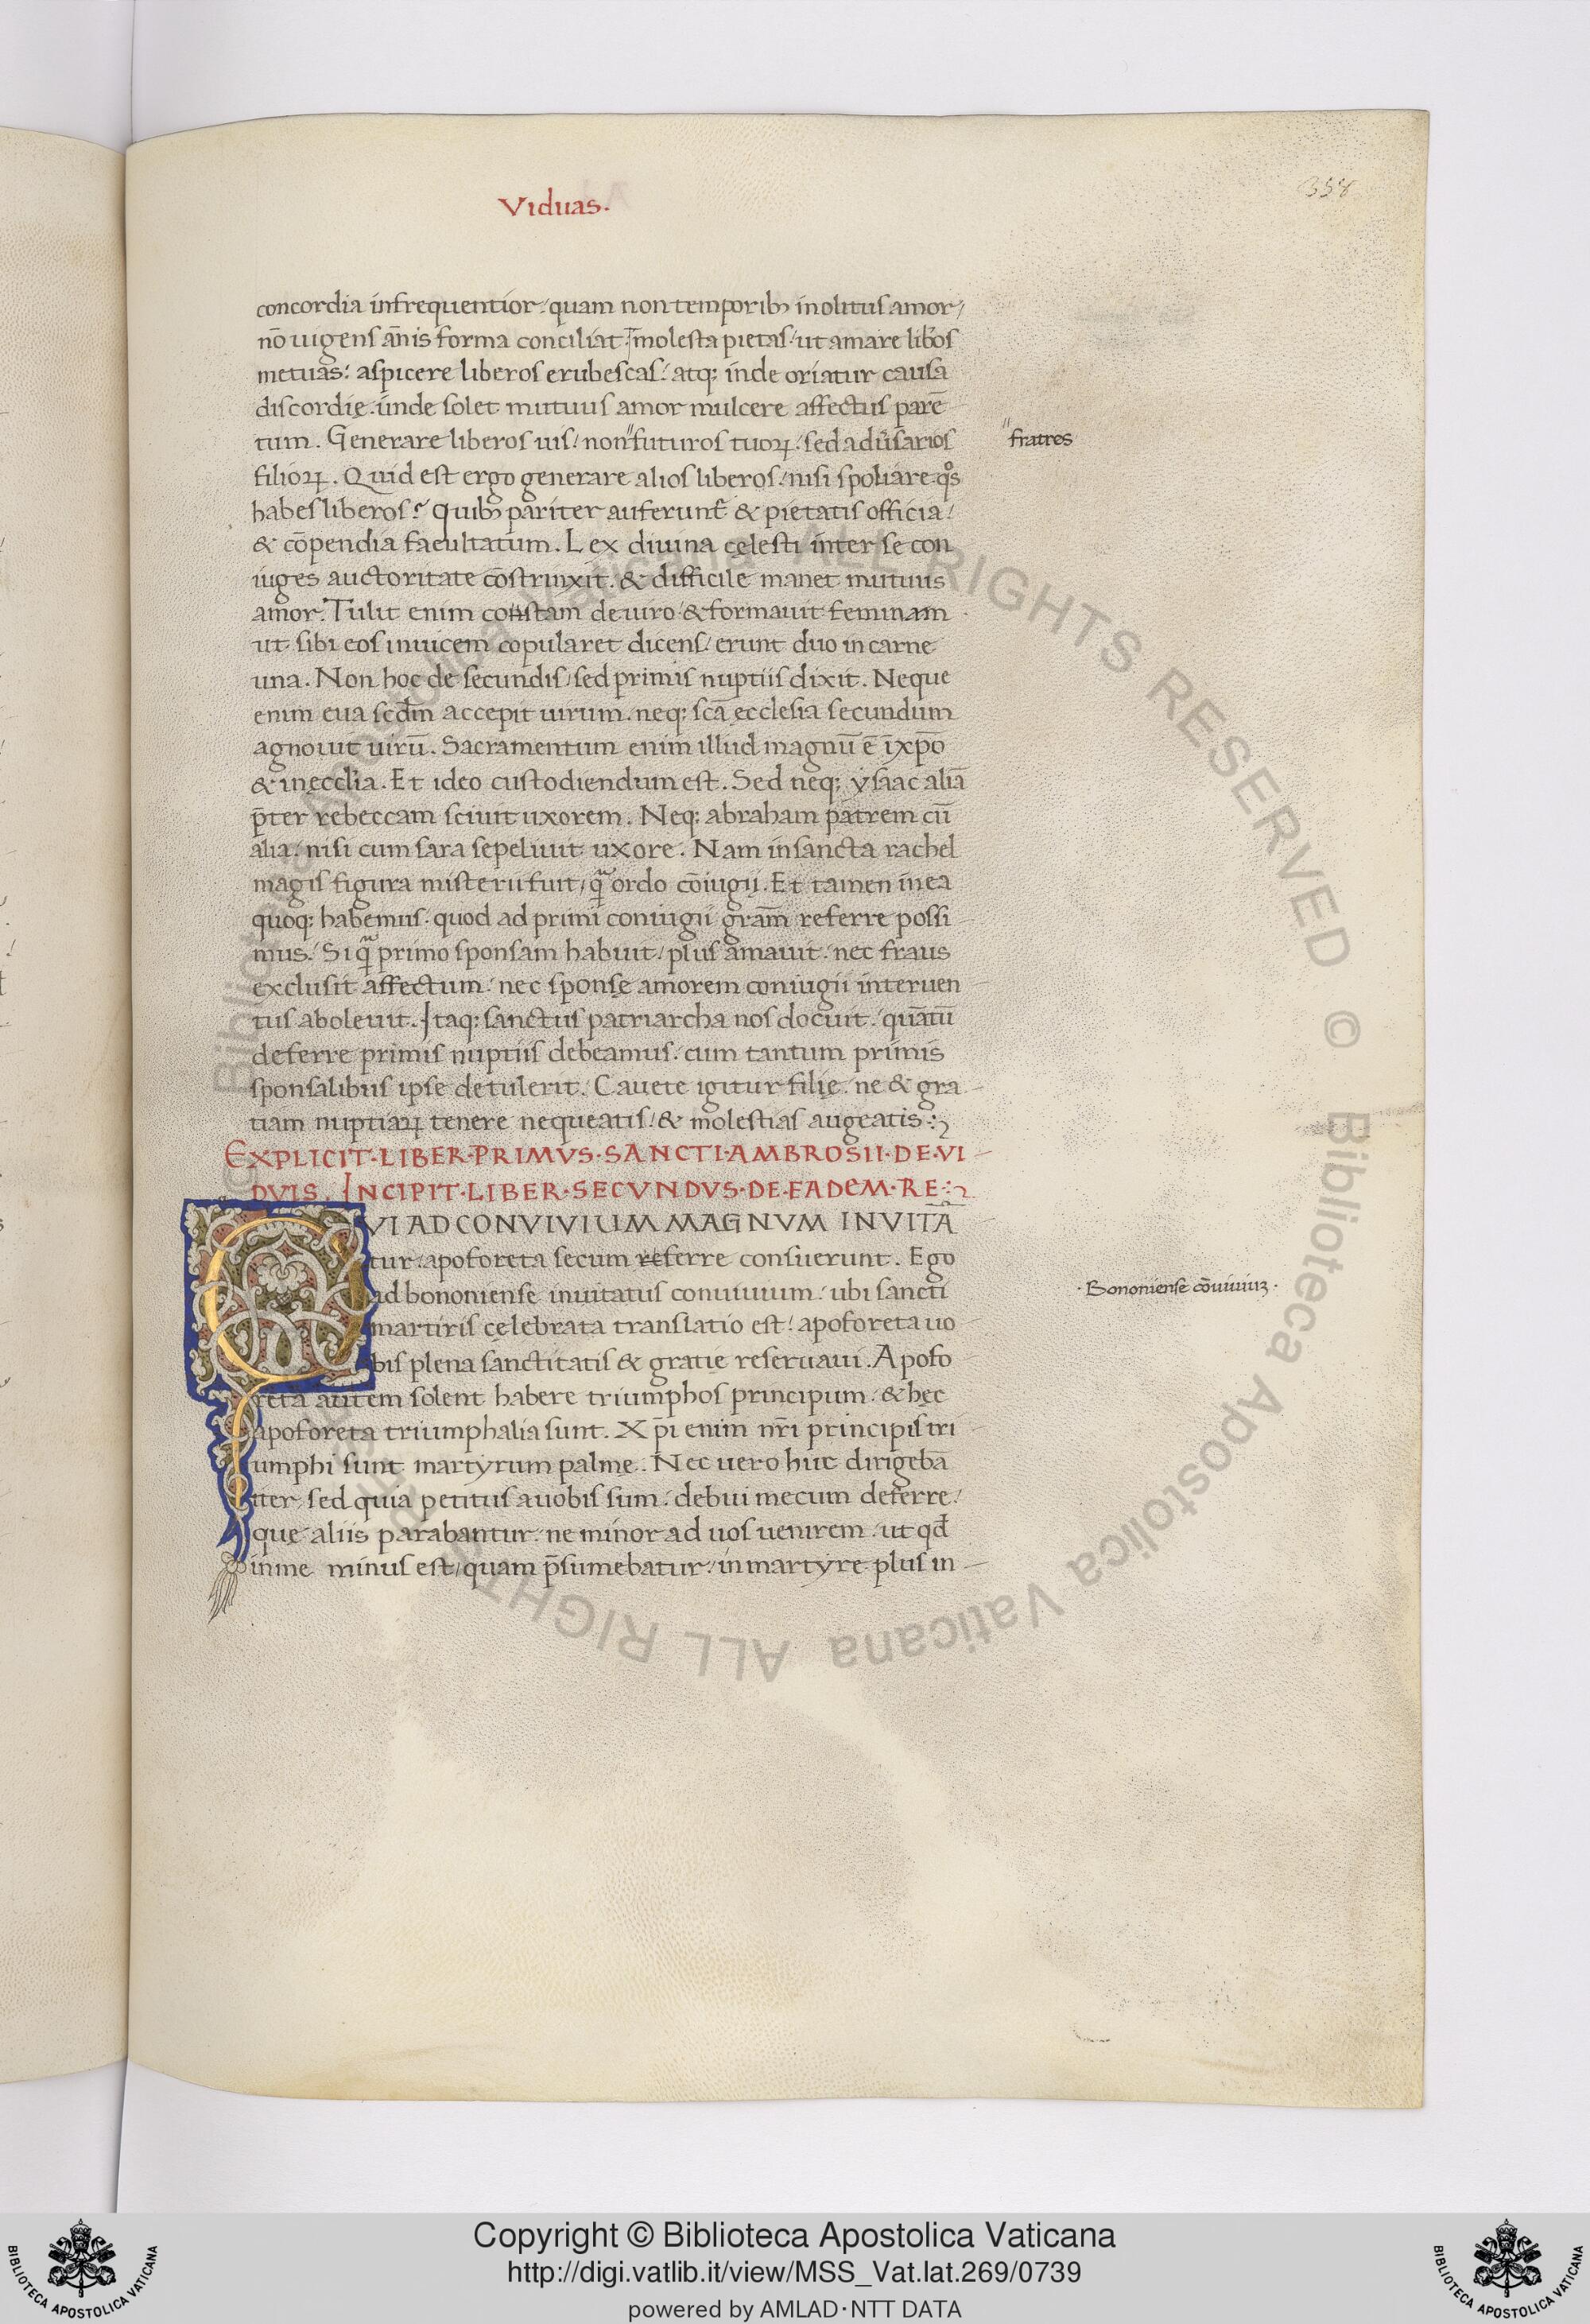 Viduas.
358
concordia infrequentior quam non temporibꝫ inolitus amor
nō uigens ānis forma conciliat molesta pietas ut amare libōs
metuas aspicere liberos erubescas atq; inde oriatur causa
discordię unde solet mutuus amor mulcere affectus parē
tum. Generare liberos uis non futuros tuoꝝ sed adūsarios
fratres
filioꝝ. Quid est ergo generare alios liberos nisi spoliare qͦs
habes liberos? Quibꝫ pariter auferunt᷑ & pietatis officia
& cōpendia facultatum. Lex diuina cęlesti inter se con
iuges auctoritate cōstrinxit. & difficile manet mutuus
amor. Tulit enim costam de uiro & formauit feminam
ut sibi eos inuicem copularet dicens erunt duo in carne
una. Non hoc de secundis sed primis nuptiis dixit. Neque
enim eua scd̄m accepit uirum neq; scā ęcclesia secundum
agnouit uirū. Sacramentum enim illud magnū ē ī xp̄o
& in ęcclia. Et ideo custodiendum est. Sed neq; ysaac aliā
p̄ter rebeccam sciuit uxorem. Neq; abraham patrem cū
alia nisi cum sara sepeliuit uxore. Nam in sancta rachel
magis figura misterii fuit, qᷓ ordo cōiugii. Et tamen in ea
quoq; habemus quod ad primi coniugii grām referre possi
mus. Siqᷓ primo sponsam habuit plus amauit nec fraus
exclusit affectum nec sponsę amorem coniugii interuen
tus aboleuit. Itaq; sanctus patriarcha nos docuit quātū
deferre primis nuptiis debeamus cum tantum primis
sponsalibus ipse detulerit. Cauete igitur filię ne & gra
tiam nuptiaꝝ tenere nequeatis & molestias augeatis
EXPLICIT·LIBER·PRIMVS·SANCTI·AMBROSII·DE·VI
DVIS. INCIPIT·LIBER·SECVNDVS·DE·EADEM·RE
QVI AD CONVIVIUM MAGNVM INVITĀ
tur apoforeta secum referre consuerunt. Ego
ad bononiense inuitatus conuiuium ubi sancti
Bononiense cōuiuiuꝫ
martiris cęlebrata translatio est apoforeta uo
bis plena sanctitatis & gratię reseruaui. Apofo
reta autem solent habere triumphos principum & hęc
apoforeta triumphalia sunt. Xp̄i enim nr̄i principis tri
umphi sunt martyrum palmę. Nec uero huc dirigebā
iter sed quia petitus a uobis sum debui mecum deferre
quę aliis parabantur ne minor ad uos uenirem ut qd̄
in me minus est quam p̄sumebatur in martyre plus in
Biblioteca Apostolica Vaticana ALL RIGHTS RESERVED © Biblioteca Apostolica Vaticana ALL RIGHT
Copyright © Biblioteca Apostolica Vaticana
http://digi.vatlib.it/view/MSS_Vat.lat.269/0739
powered by AMLAD·NTT DATA
BIBLIOTECA APOSTOLICA VATICANA
BIBLIOTECA APOSTOLICA VATICANA